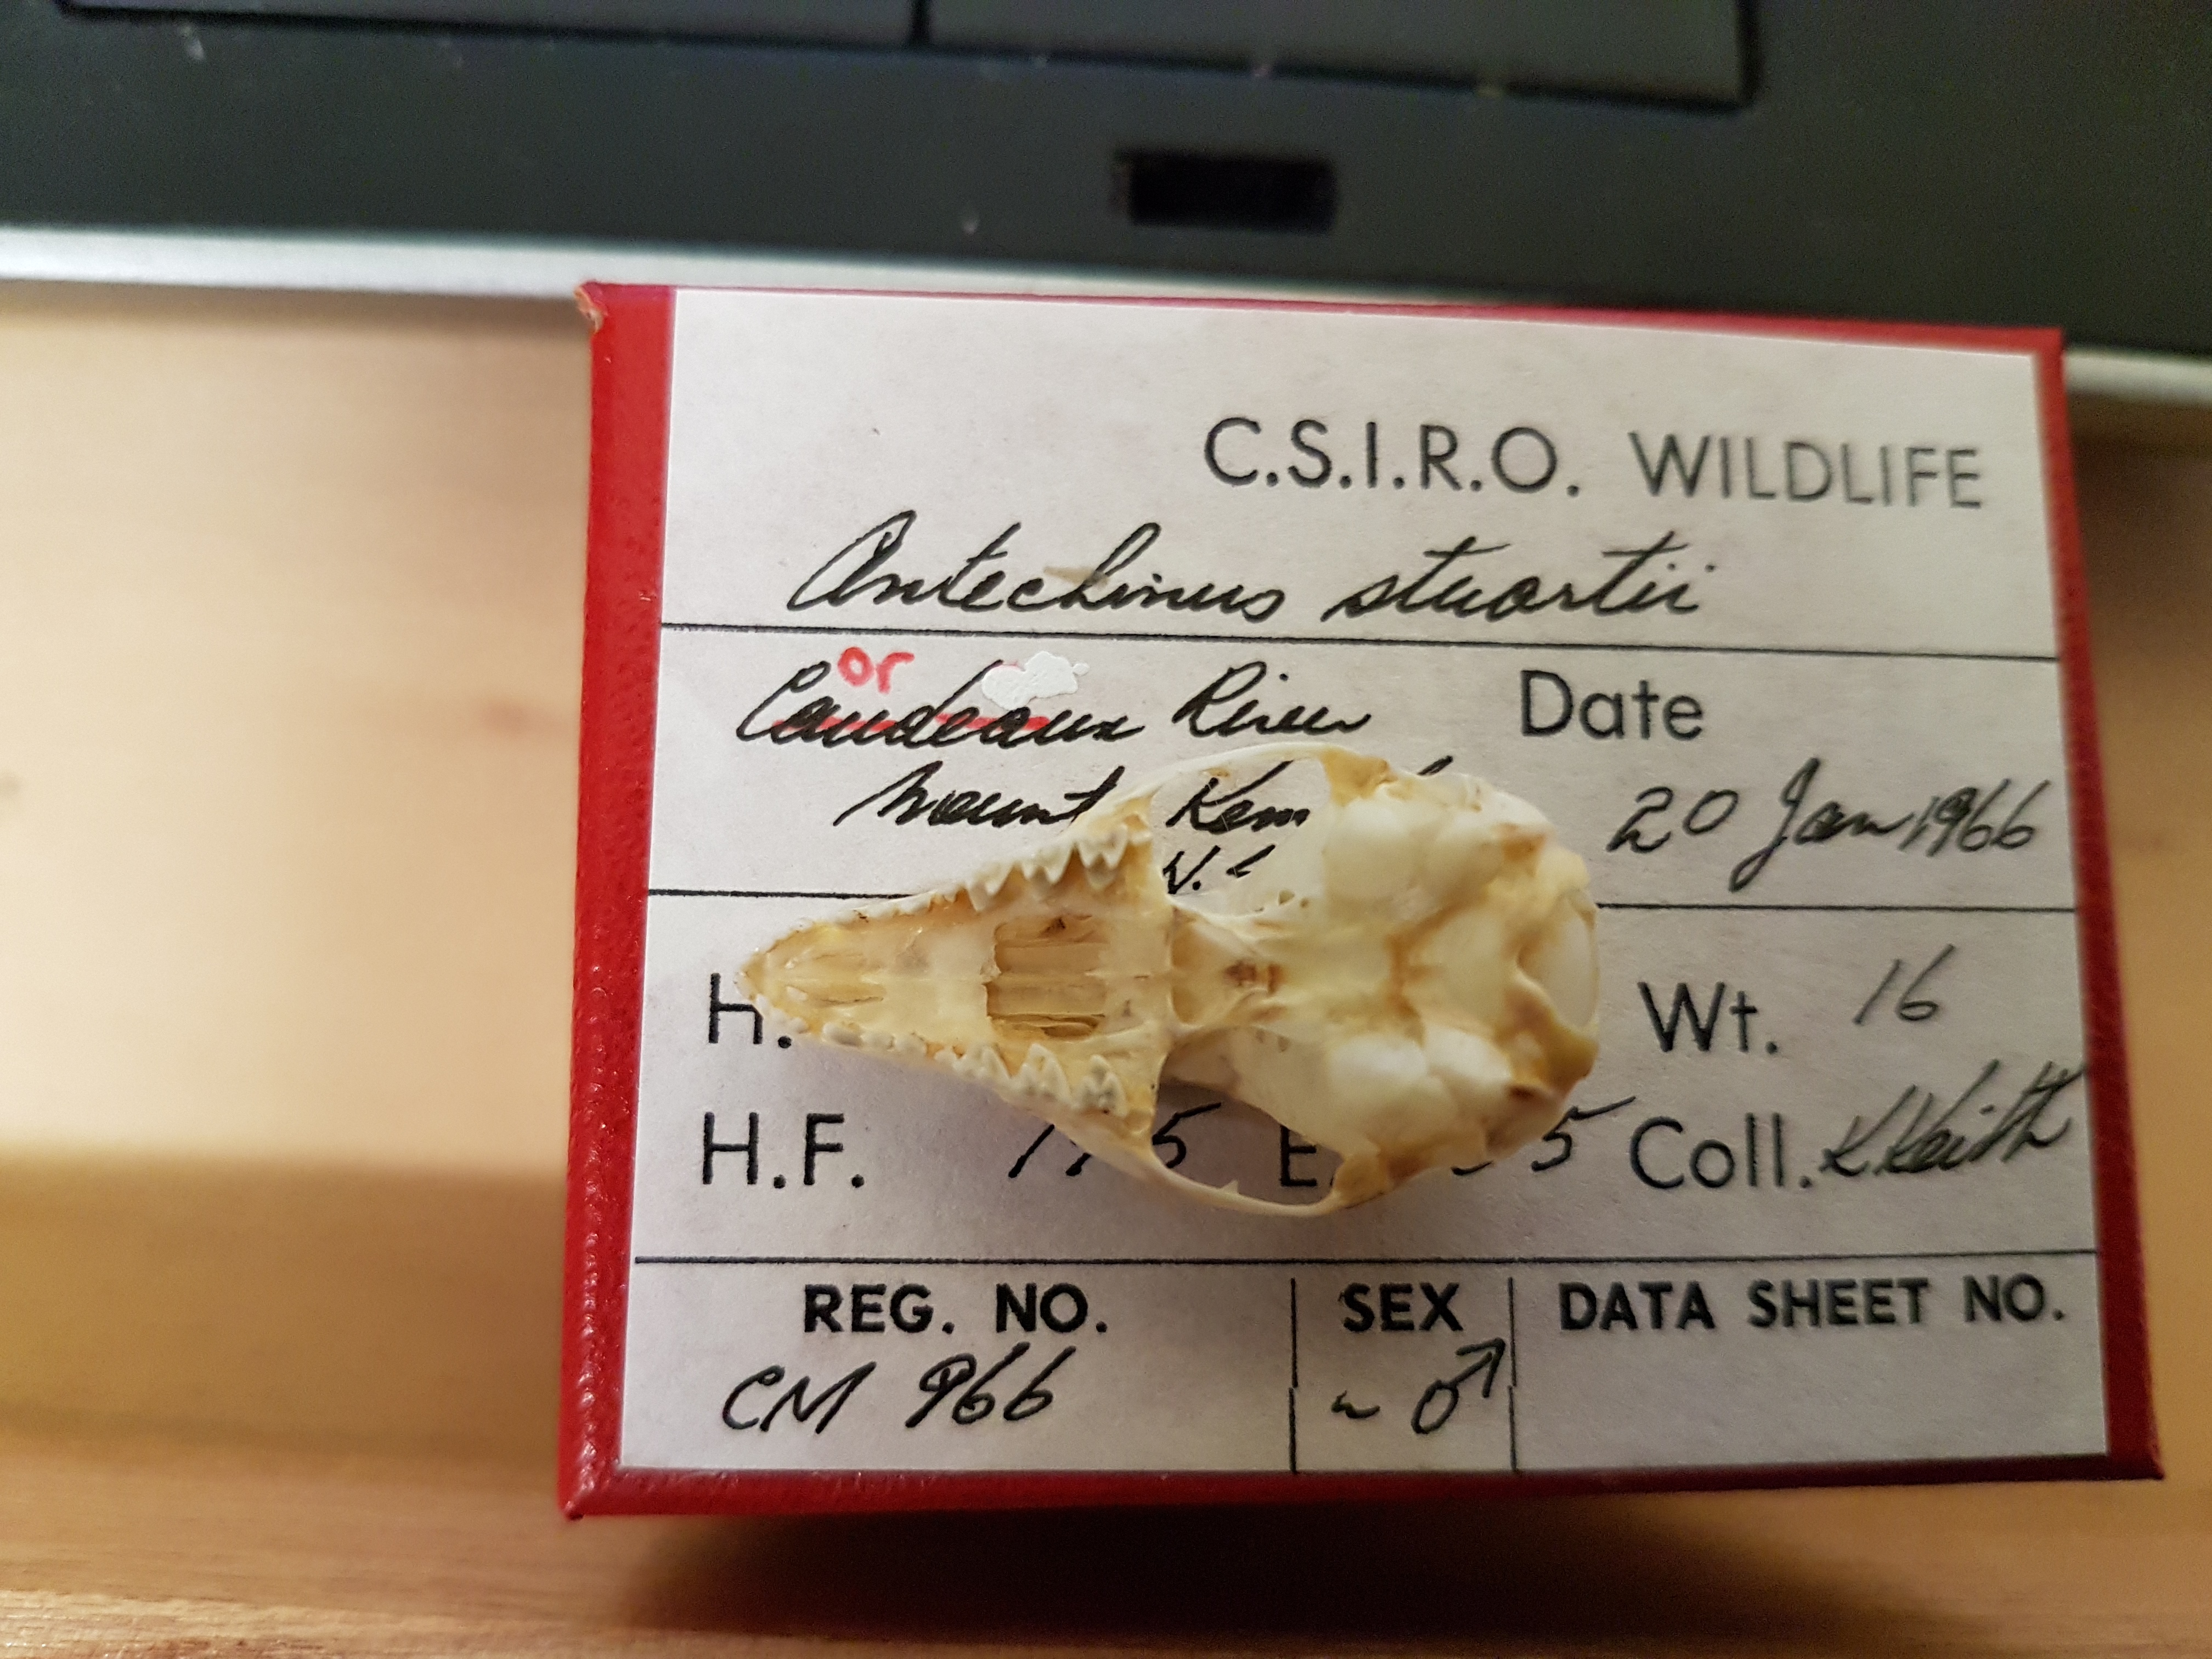 C.S.I.R.O. WILDLIFE
Antechinus stuartii
or
River Date
Mount Kem 20 Jan 1966
H. Wt. 16
H.F. E. 5 Coll. J. Keith
REG. NO. SEX DATA SHEET NO.
CM 966 ~ ♂